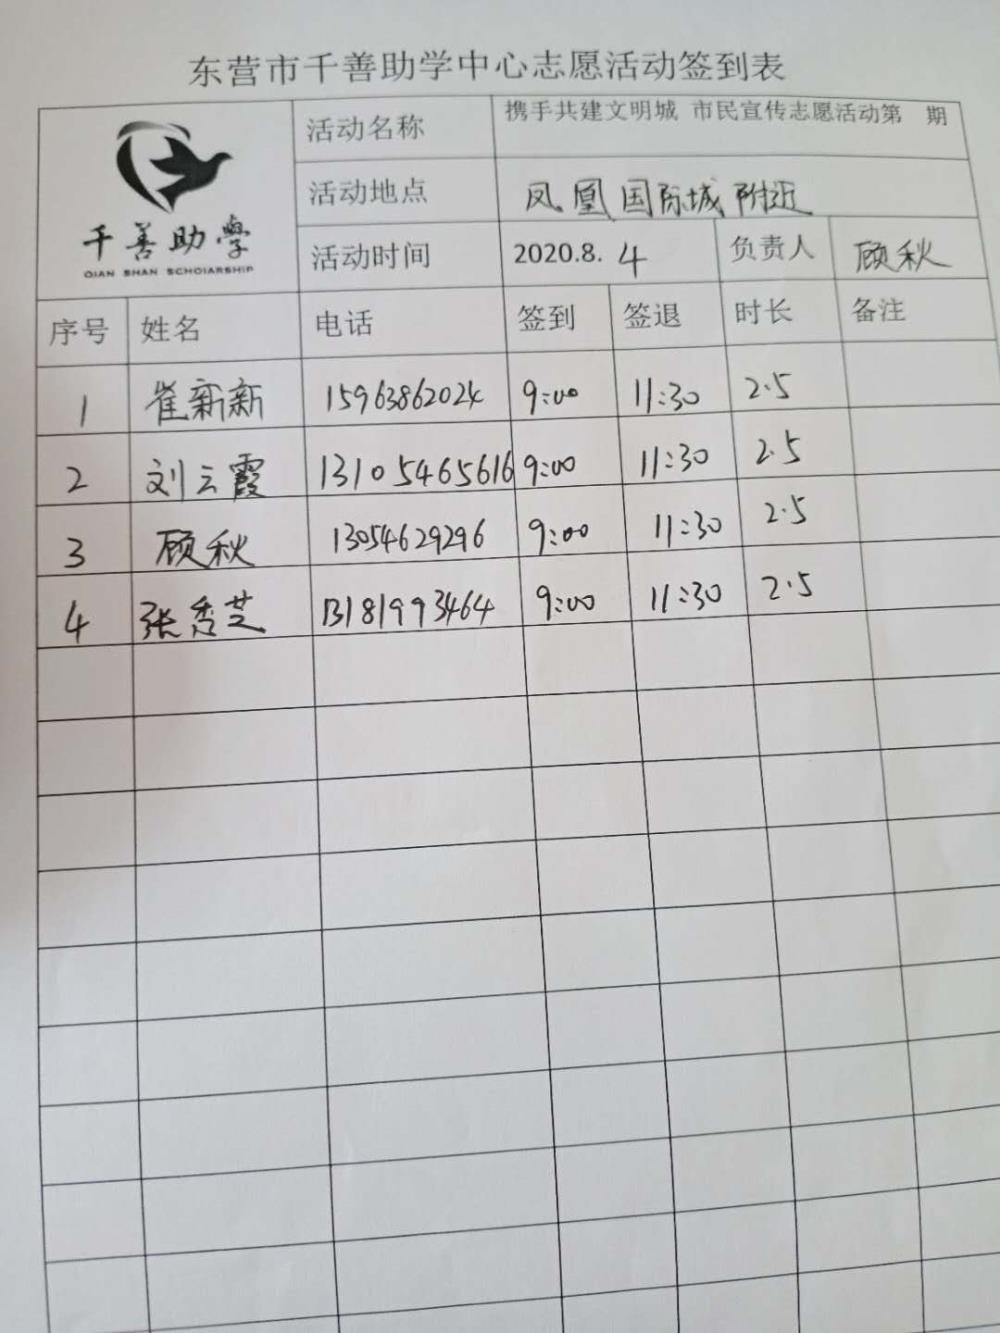 东营市千善助学中心志愿活动签到表
千善助學
QIAN SHAN SCHOlARSHIP
活动名称 携手共建文明城 市民宣传志愿活动第 期
活动地点 凤凰国际城附近
活动时间 2020.8. 4 负责人 顾秋
序号 姓名 电话 签到 签退 时长 备注
1 崔新新 15963862024 9:00 11:30 2.5
2 刘云霞 13105465616 9:00 11:30 2.5
3 顾秋 13054629296 9:00 11:30 2.5
4 张秀芝 13181993464 9:00 11:30 2.5